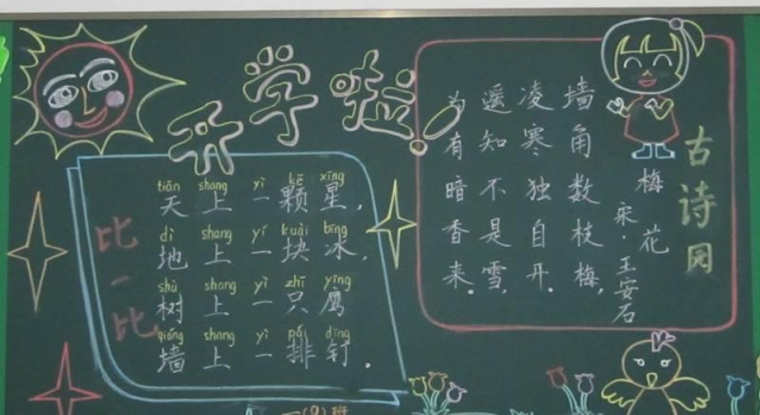 开学啦！
比一比
tiān shang yì kē xīng
天上一颗星，
dì shang yí kuài bīng
地上一块冰，
shù shang yì zhī yīng
树上一只鹰
qiáng shang yì pái dīng
墙上一排钉。
古诗园
梅花
宋·王安石
墙角数枝梅，
凌寒独自开。
遥知不是雪，
为有暗香来。